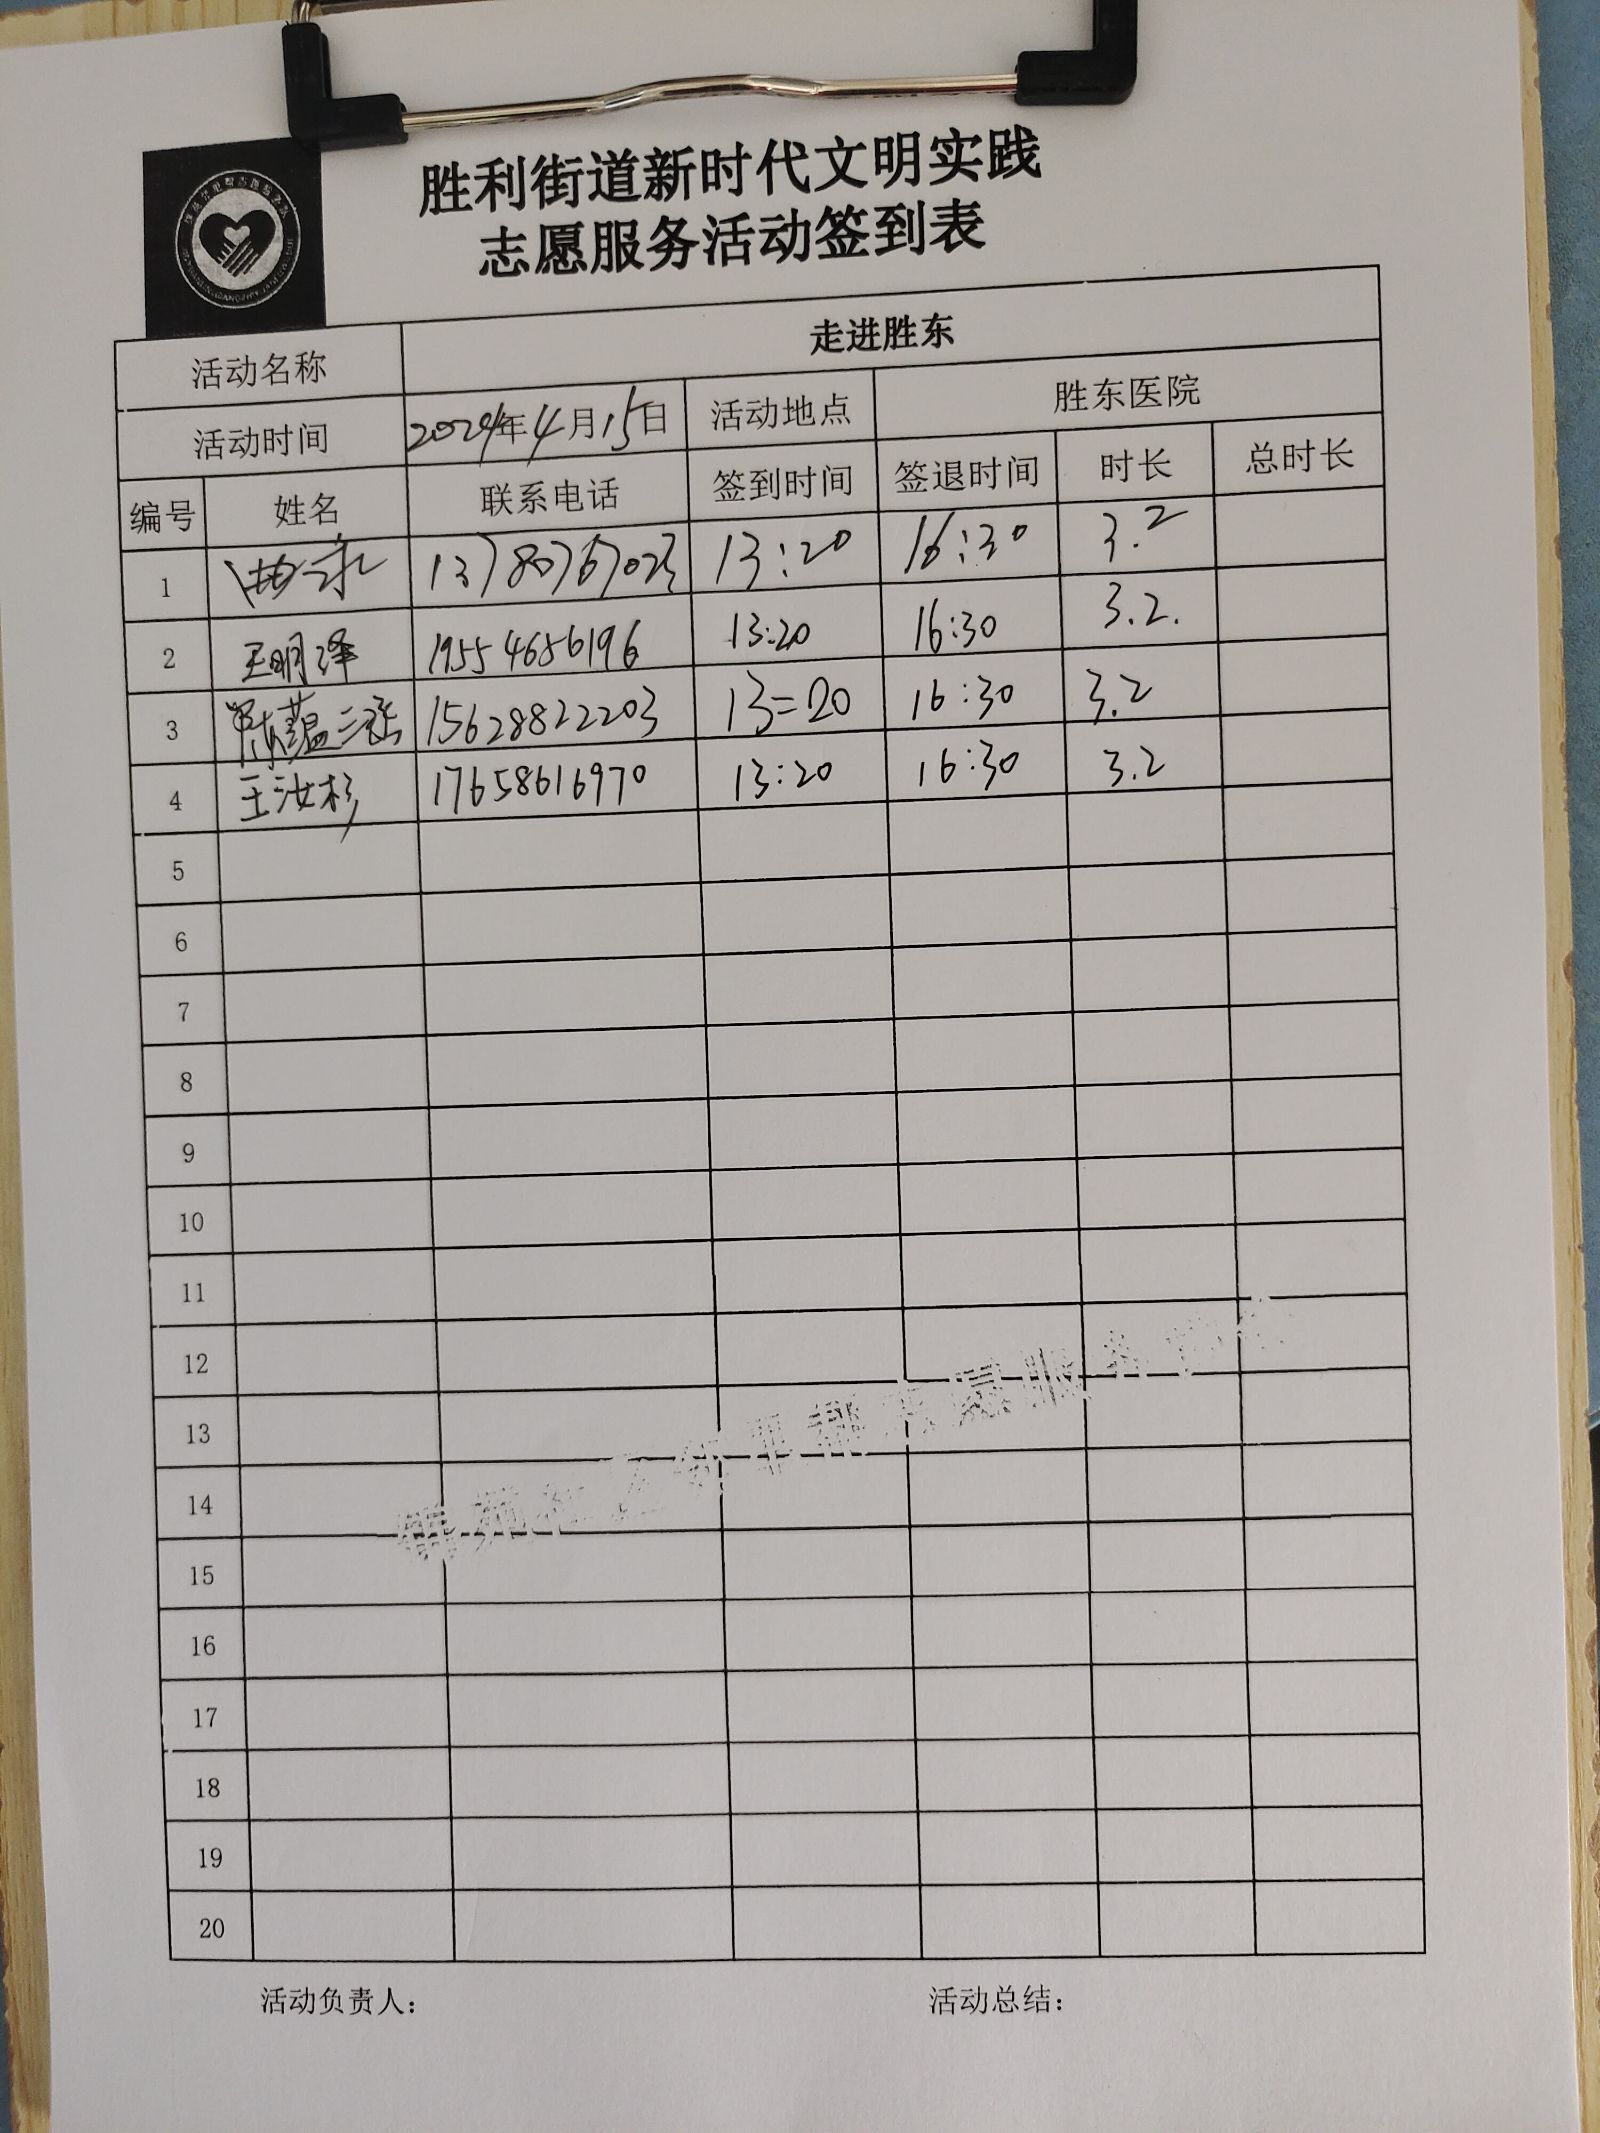 胜利街道新时代文明实践
志愿服务活动签到表
活动名称 走进胜东
活动时间 2024年4月15日 活动地点 胜东医院
编号 姓名 联系电话 签到时间 签退时间 时长 总时长
1 13:20 16:30 3.2
2 王明泽 19554656196 13:20 16:30 3.2.
3 15628822203 13:20 16:30 3.2
4 王汝杉 17658616970 13:20 16:30 3.2
5
6
7
8
9
10
11
12
13
14
15
16
17
18
19
20
活动负责人： 活动总结：